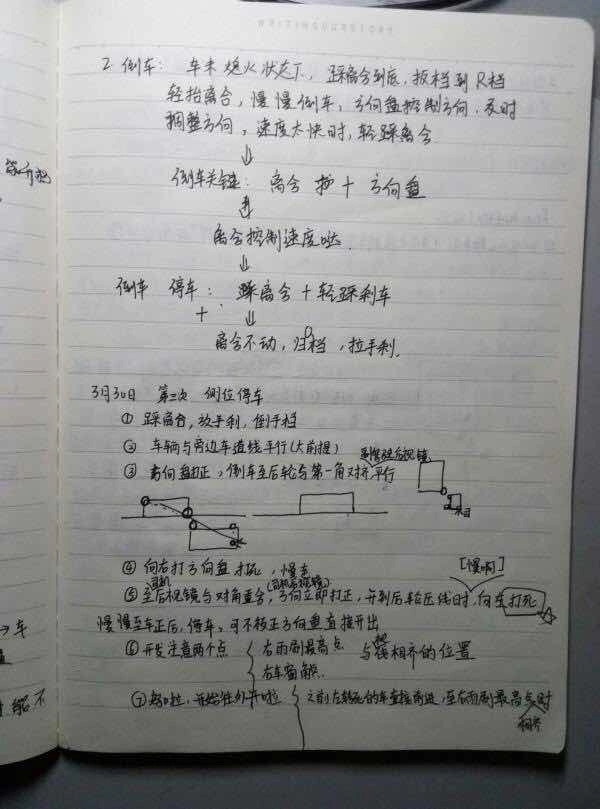 2. 倒车: 车未熄火状态下, 踩离合到底, 扳档到R档
轻抬离合, 慢慢倒车, 方向盘控制方向, 及时
调整方向, 速度太快时, 轻踩离合
倒车关键: 离合 + 方向盘
离合控制速度哒.
倒车 停车: 踩离合 + 轻踩刹车
+
离合不动, 归0档, 拉手刹.
3月30日 第三次 侧位停车
① 踩离合, 放手刹, 倒手档
② 车辆与旁边车道线平行(大前提)
后视镜
③ 方向盘打正, 倒车至后轮与第一角对齐, 平行
④ 向右打方向盘打死, 慢走
[慢啊]
⑤ 至后视镜与对角重合, 方向立即打正, 并到后轮压线时, 向左打死
司机
(司机后视镜)
慢慢至车正后, 停车, 可不校正方向盘直接开出
⑥ 开发注意两个点 { 右雨刷最高点 与 相齐的位置
右车窗
⑦ 好啦, 开始往外开啦 { 之前左转死的车直接前进, 至右雨刷最高点时
相齐
车
能不